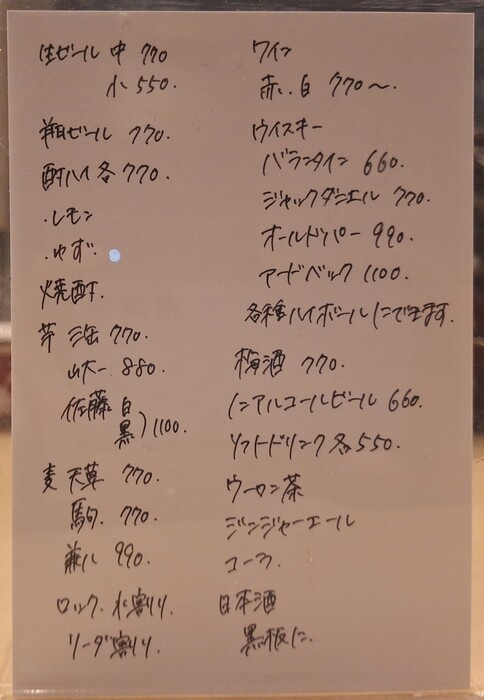 生ビール 中 770
小 550.
瓶ビール 770.
酎ハイ 各 770.
・レモン
・ゆず
焼酎.
芋 三岳 770.
山大一 880.
佐藤 白
黒 ) 1100.
麦 天草 770.
駒. 770.
兼八 990.
ロック. 水割り.
ソーダ割り.
ワイン
赤. 白 770〜.
ウイスキー
バランタイン 660.
ジャックダニエル 770.
オールドパー 990.
アードベック 1100.
各種ハイボールにできます.
梅酒 770.
ノンアルコールビール 660.
ソフトドリンク各550.
ウーロン茶
ジンジャーエール
コーラ.
日本酒
黒板に.